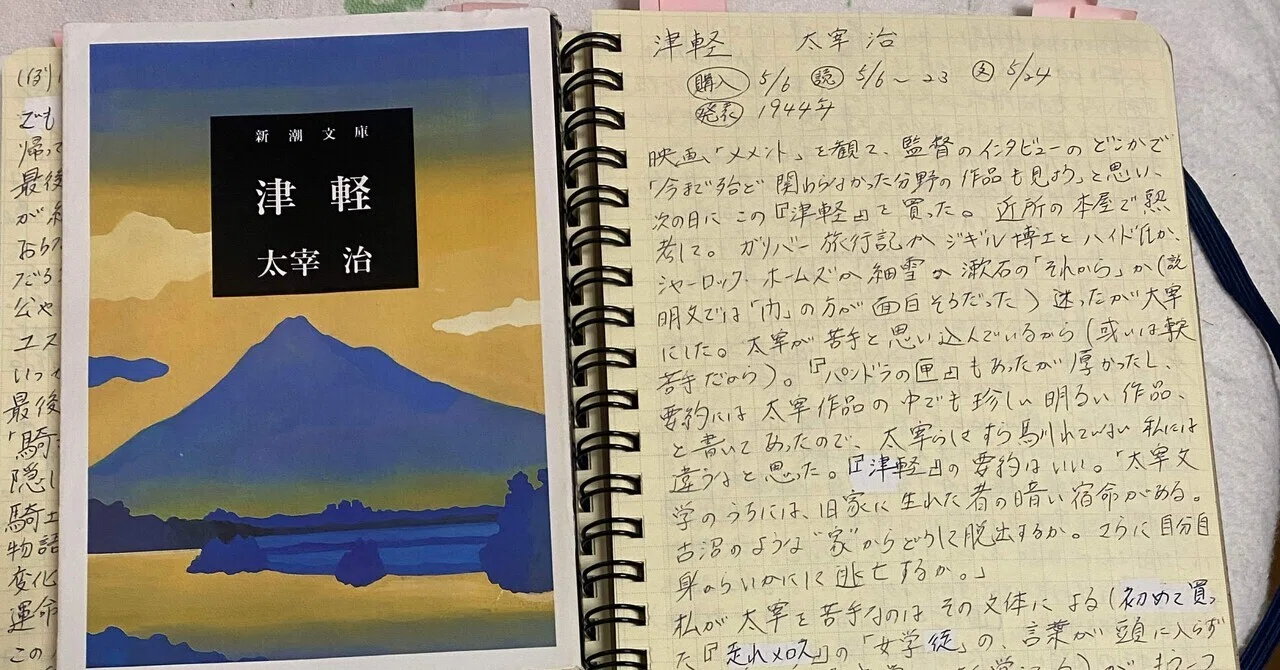 (ぼり
でも
帰って
最後
が糸
おら
だろ
公や
ユス
いっ
最後
「騎
隠し
騎士
物語
変化
運命
この
新潮文庫
津軽
太宰治
津軽　太宰治
購入 5/6 読 5/6～23 文 5/24
発表 1944年
映画「メメント」を観て、監督のインタビューのどこかで
「今まで殆ど関わらなかった分野の作品も見よう」と思い、
次の日にこの『津軽』を買った。近所の本屋で熟
考して。ガリバー旅行記かジキル博士とハイド氏か、
シャーロック・ホームズか細雪か漱石の「それから」か(説
明文では「門」の方が面白そうだった)迷ったが太宰
にした。太宰が苦手と思い込んでいるから(或いは軽
苦手だから)。『パンドラの匣』もあったが厚かったし、
要約には太宰作品の中でも珍しい明るい作品、
と書いてあったので、太宰らしさすら馴れていない私には
違うなと思った。『津軽』の要約はいい。「太宰文
学のうちには、旧家に生れた者の暗い宿命がある。
古沼のような“家”からどうして脱出するか。さらに自分自
身からいかにして逃亡するか。」
私が太宰を苦手なのはその文体による(初めて買っ
た『走れメロス』の「女学徒」の、言葉が頭に入らず